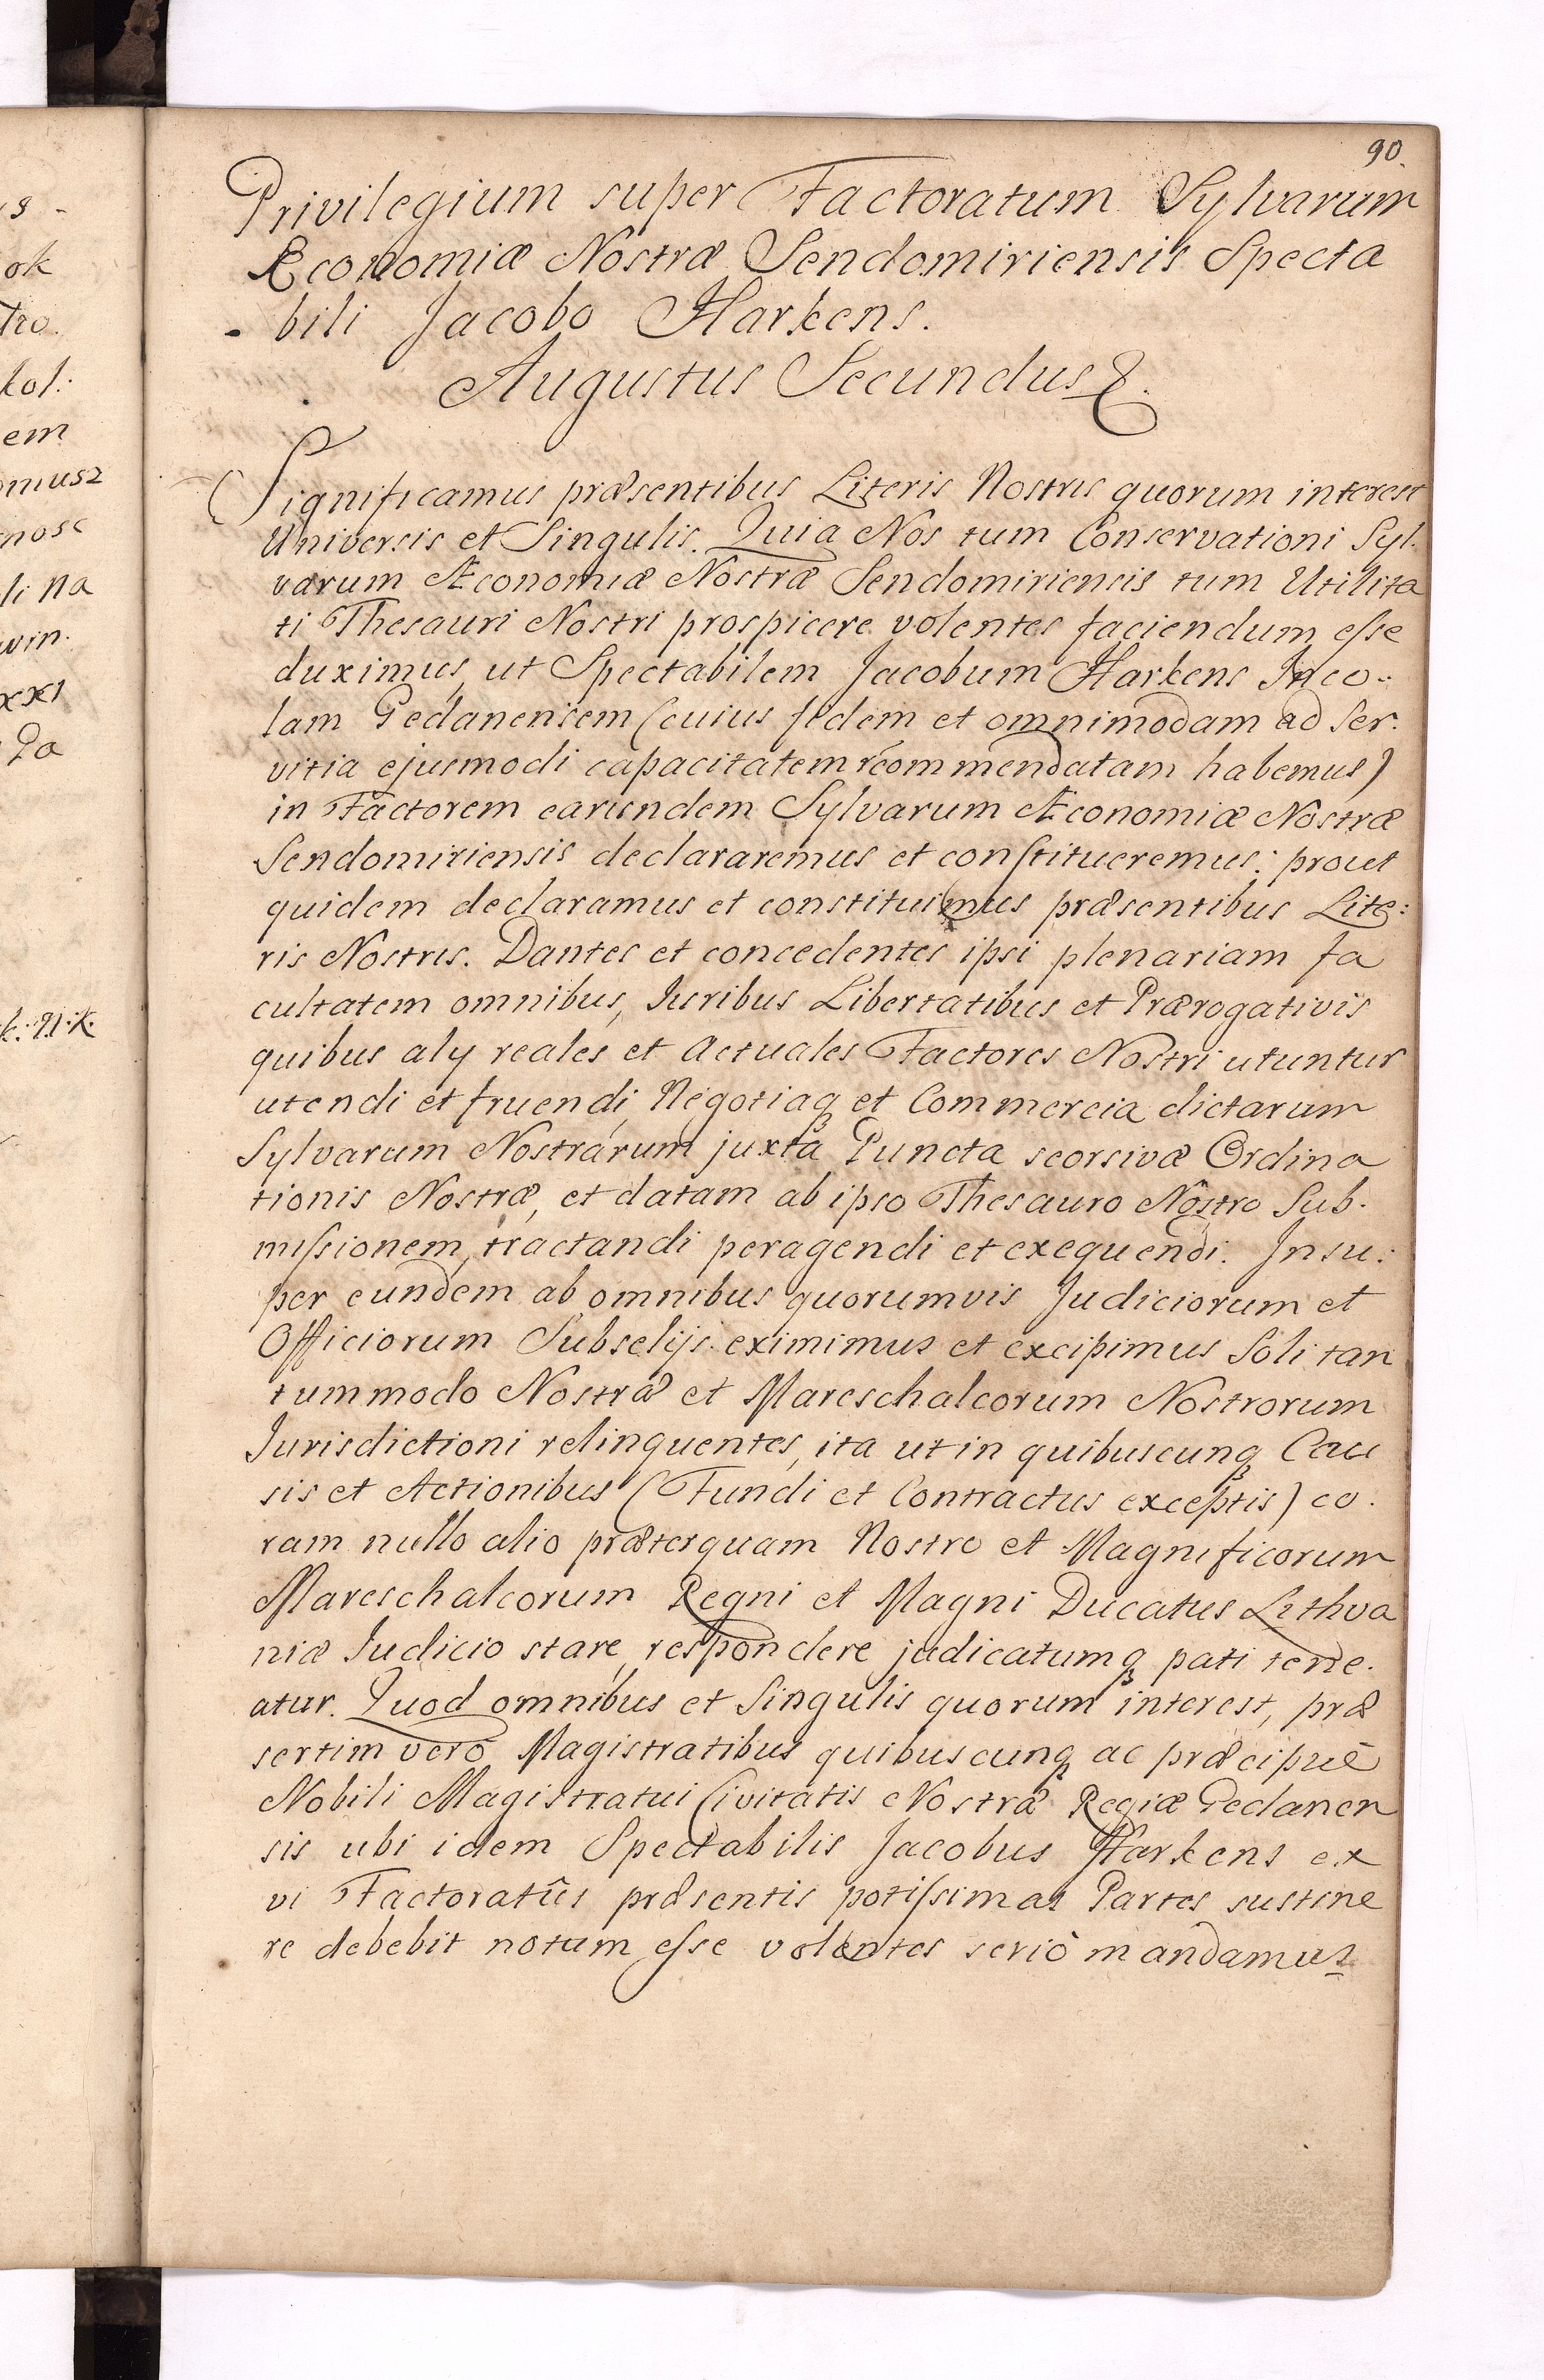 90.
Privilegium super Factoratum Sylvarum
Æconomiæ Nostræ Sendomiriensis Specta
bili Jacobo Harkens.
Augustus Secundus &.
Significamus præsentibus Literis Nostris quorum interest
Universis et Singulis. Quia Nos tum Conservationi Syl.
varum Æconomiæ Nostræ Sendomiriensis tum Utilita
ti Thesauri Nostri prospicere volentes faciendum esse
duximus, ut Spectabilem Jacobum Harkens Inco:
lam Gedanensem (cuius fidem et omnimodam ad Ser.
vitia ejusmodi capacitatem recommendatam habemus)
in Factorem earundem Sylvarum Æconomiæ Nostræ
Sendomiriensis declararemus et constitueremus: prout
quidem declaramus et constituimus præsentibus Lite:
ris Nostris. Dantes et concedentes ipsi plenariam fa
cultatem omnibus, Iuribus Libertatibus et Prærogativis
quibus alÿ reales et Actuales Factores Nostri utuntur
utendi et fruendi, Negotiaq et Commercia dictarum
Sylvarum Nostrarum juxta Puncta seorsivæ Ordina
tionis Nostræ, et datam ab ipso Thesauro Nostro Sub.
missionem, tractandi peragendi et exequendi. Insu:
per eundem ab omnibus quorumvis Judiciorum et
Officiorum Subselijs eximimus et excipimus Soli tan
tummodo Nostræ et Mareschalcorum Nostrorum
Iurisdictioni relinquentes, ita ut in quibuscunq Cau
sis et Actionibus (Fundi et Contractus exceptis) co.
ram nullo alio præterquam Nostro et Magnificorum
Mareschalcorum Regni et Magni Ducatus Lithva
niæ Iudicio stare, respondere judicatumq pati tene.
atur. Quod omnibus et Singulis quorum interest, præ
sertim verò Magistratibus quibuscunq ac præcipuè
Nobili Magistratui Civitatis Nostræ Regiæ Gedanen
sis ubi idem Spectabilis Jacobus Harkens ex
vi Factoratûs præsentis potissimas Partes sustine
re debebit notum esse volentes seriò mandamus